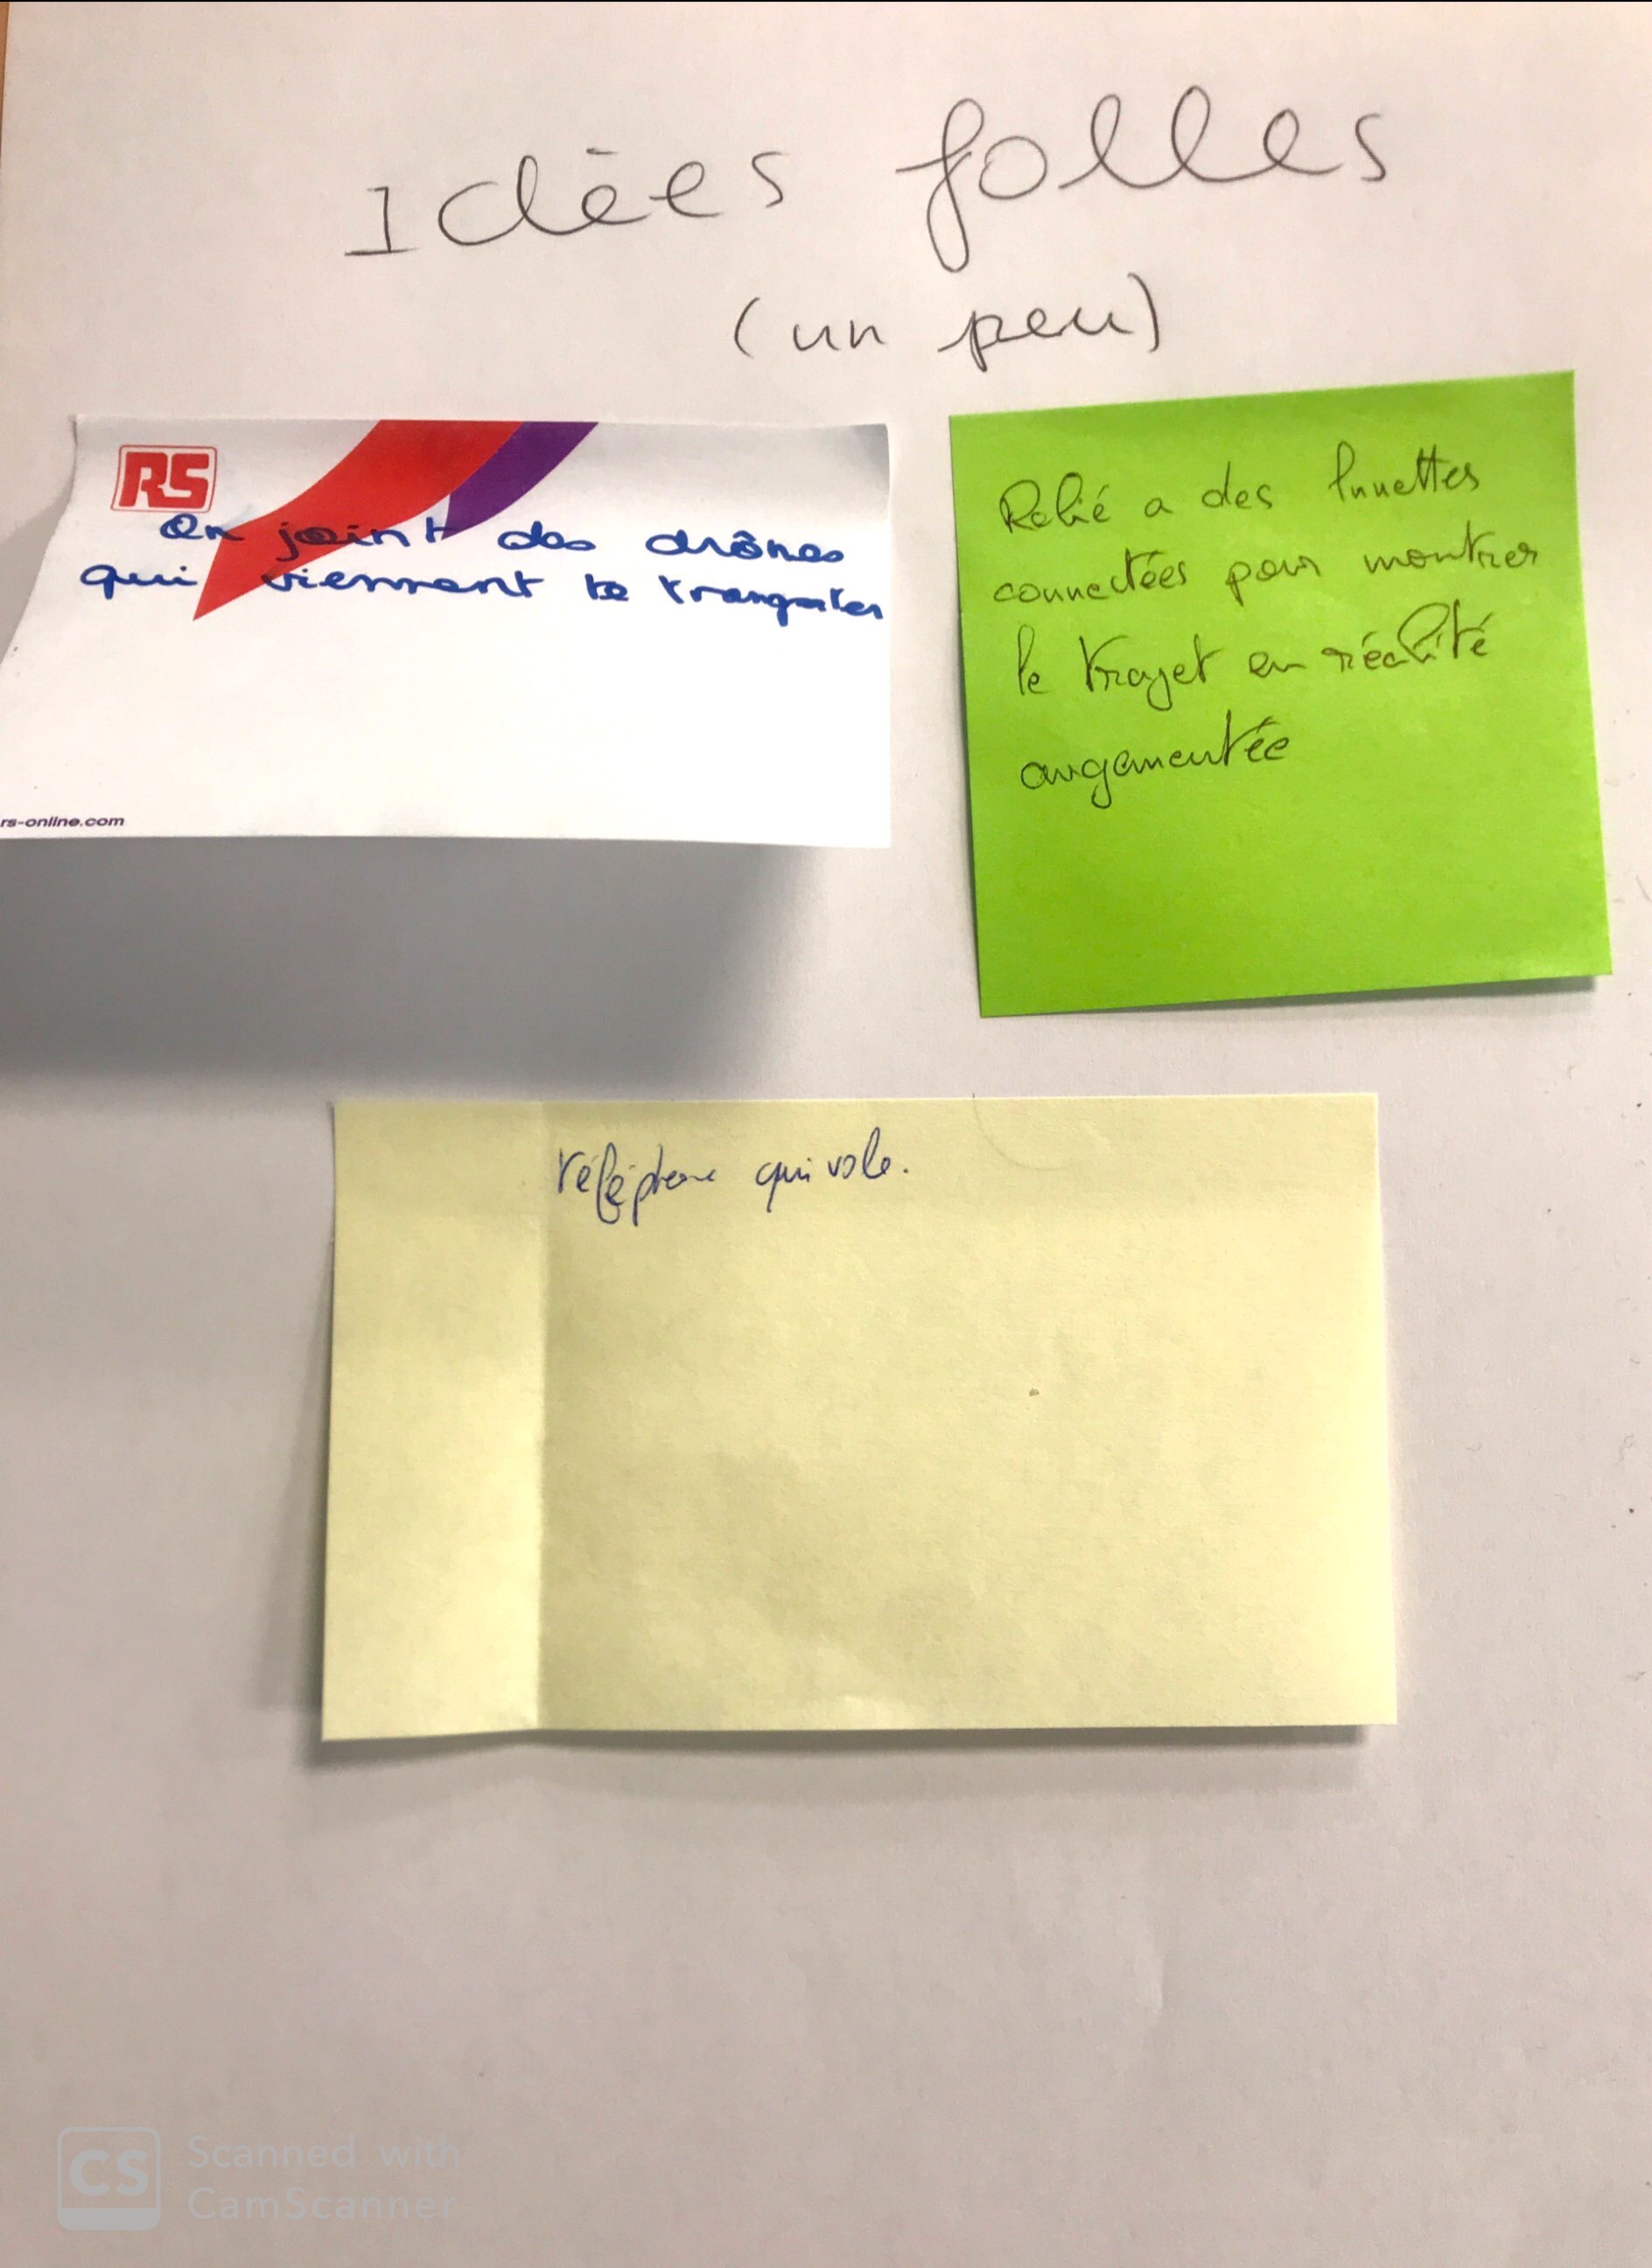 Idées folles
(un peu)
RS
On joint des drônes
qui viennent te
rs-online.com
Relié a des lunettes
connectées pour montrer
le trajet en réalité
augamentée
téléphone qui vole.
CS Scanned with
CamScanner